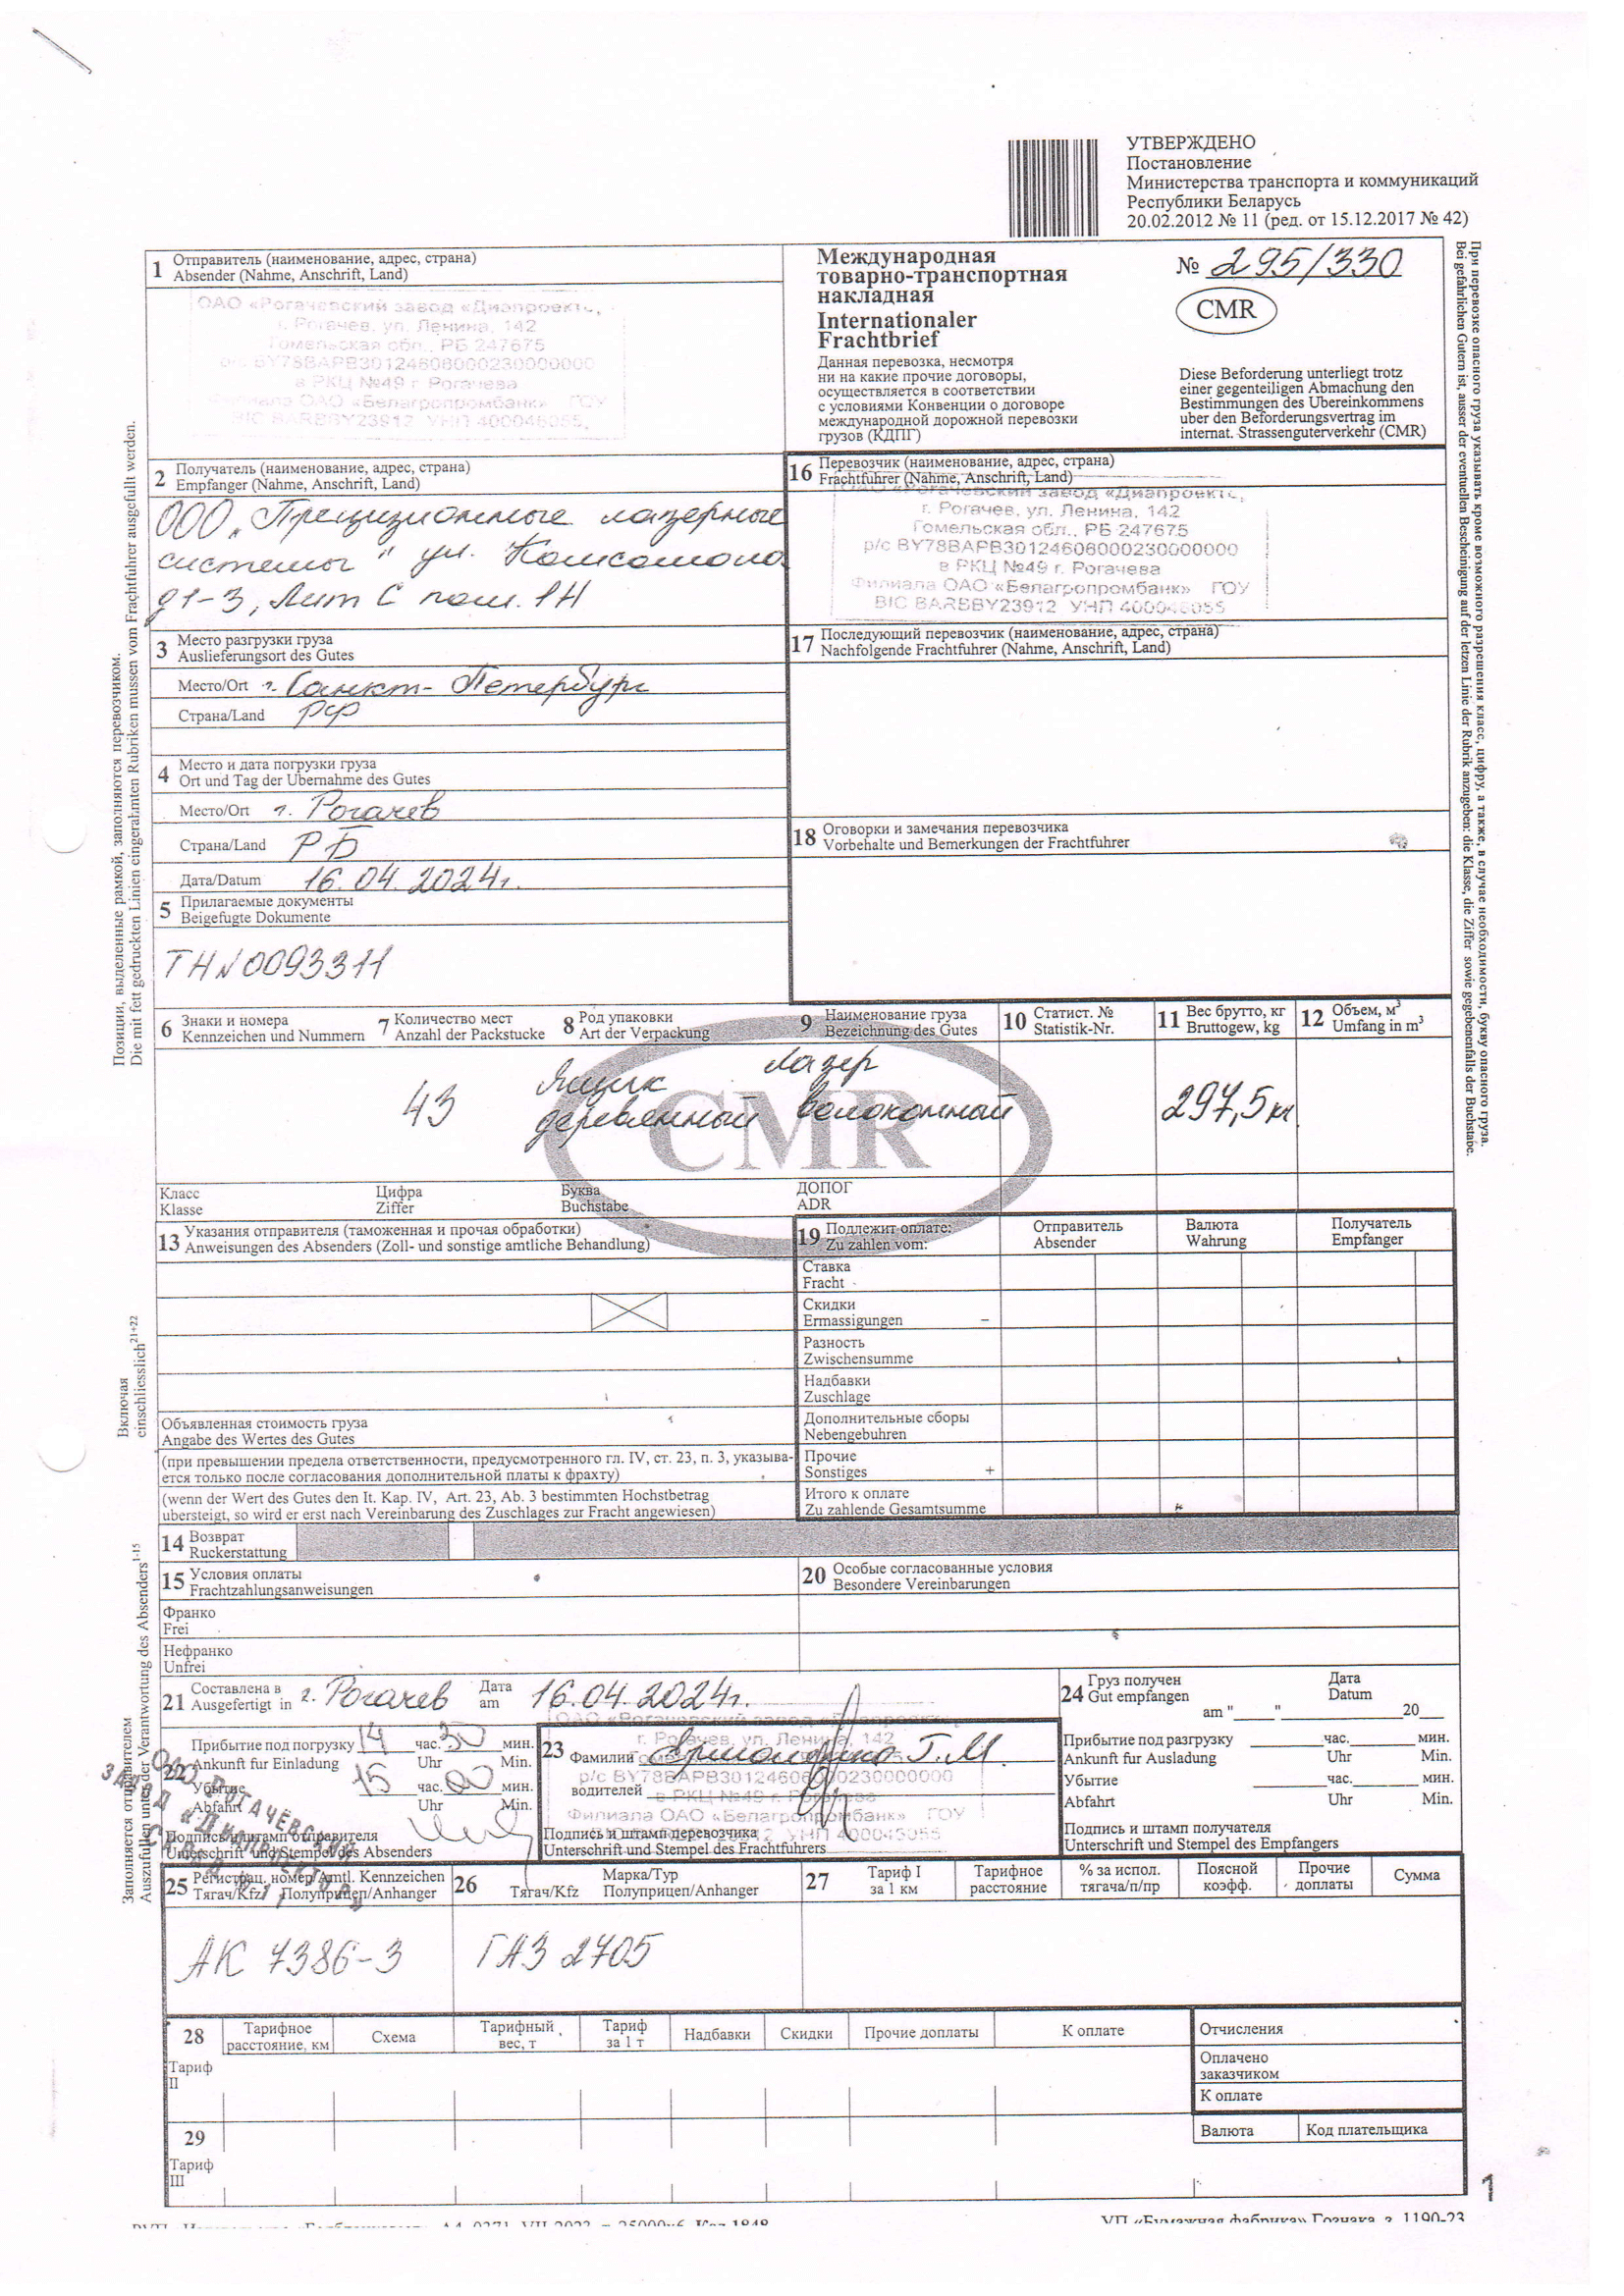 УТВЕРЖДЕНО
Постановление
Министерства транспорта и коммуникаций
Республики Беларусь
20.02.2012 № 11 (ред. от 15.12.2017 № 42)
1 Отправитель (наименование, адрес, страна)
Absender (Nahme, Anschrift, Land)
ОАО «Рогачевский завод «Диапроект»,
г. Рогачев, ул. Ленина, 142
Гомельская обл., РБ 247675
р/с BY78BAPB30124608000230000000
в РКЦ №49 г. Рогачева
Филиала ОАО «Белагропромбанк» ГОУ
Международная
товарно-транспортная
накладная
Internationaler
Frachtbrief
№ 295/330
CMR
Данная перевозка, несмотря
ни на какие прочие договоры,
осуществляется в соответствии
с условиями Конвенции о договоре
международной дорожной перевозки
грузов (КДПГ)
Diese Beforderung unterliegt trotz
einer gegenteiligen Abmachung den
Bestimmungen des Ubereinkommens
uber den Beforderungsvertrag im
internat. Strassenguterverkehr (CMR)
2 Получатель (наименование, адрес, страна)
Empfanger (Nahme, Anschrift, Land)
ООО "Прецизионные лазерные
системы" ул. Комсомола
д1-3, Лит С пом. 1Н
16 Перевозчик (наименование, адрес, страна)
Frachtfuhrer (Nahme, Anschrift, Land)
ОАО «Рогачевский завод «Диапроект»,
г. Рогачев, ул. Ленина, 142
Гомельская обл., РБ 247675
р/с BY78BAPB30124608000230000000
в РКЦ №49 г. Рогачева
Филиала ОАО «Белагропромбанк» ГОУ
3 Место разгрузки груза
Auslieferungsort des Gutes
Место/Ort г. Санкт-Петербург
Страна/Land РФ
17 Последующий перевозчик (наименование, адрес, страна)
Nachfolgende Frachtfuhrer (Nahme, Anschrift, Land)
4 Место и дата погрузки груза
Ort und Tag der Ubernahme des Gutes
Место/Ort г. Рогачев
Страна/Land РБ
Дата/Datum 16.04.2024г.
18 Оговорки и замечания перевозчика
Vorbehalte und Bemerkungen der Frachtfuhrer
5 Прилагаемые документы
Beigefugte Dokumente
ТН№0093311
6 Знаки и номера
Kennzeichen und Nummern
7 Количество мест
Anzahl der Packstucke
8 Род упаковки
Art der Verpackung
9 Наименование груза
Bezeichnung des Gutes
10 Статист. №
Statistik-Nr.
11 Вес брутто, кг
Bruttogew, kg
12 Объем, м³
Umfang in m³
43
Ящик
деревянный
лазер
волоконный
297,5 кг
CMR
Класс
Klasse
Цифра
Ziffer
Буква
Buchstabe
ДОПОГ
ADR
13 Указания отправителя (таможенная и прочая обработки)
Anweisungen des Absenders (Zoll- und sonstige amtliche Behandlung)
Объявленная стоимость груза
Angabe des Wertes des Gutes
(при превышении предела ответственности, предусмотренного гл. IV, ст. 23, п. 3, указыва-
ется только после согласования дополнительной платы к фрахту)
(wenn der Wert des Gutes den It. Kap. IV, Art. 23, Ab. 3 bestimmten Hochstbetrag
ubersteigt, so wird er erst nach Vereinbarung des Zuschlages zur Fracht angewiesen)
19 Подлежит оплате:
Zu zahlen vom:
Отправитель
Absender
Валюта
Wahrung
Получатель
Empfanger
Ставка
Fracht
Скидки
Ermassigungen –
Разность
Zwischensumme
Надбавки
Zuschlage
Дополнительные сборы
Nebengebuhren
Прочие
Sonstiges +
Итого к оплате
Zu zahlende Gesamtsumme
14 Возврат
Ruckerstattung
15 Условия оплаты
Frachtzahlungsanweisungen
Франко
Frei
Нефранко
Unfrei
20 Особые согласованные условия
Besondere Vereinbarungen
21 Составлена в
Ausgefertigt in г. Рогачев
Дата
am 16.04.2024г.
24 Груз получен
Gut empfangen
Дата
Datum
am "____"____ 20__
22 Прибытие под погрузку 14 час. 30 мин.
Ankunft fur Einladung Uhr Min.
Убытие 15 час. 00 мин.
Abfahrt Uhr Min.
Подпись и штамп отправителя
Unterschrift und Stempel des Absenders
23 Фамилии
водителей
Подпись и штамп перевозчика
Unterschrift und Stempel des Frachtfuhrers
ОАО «Рогачевский завод «Диапроект»,
г. Рогачев, ул. Ленина, 142
р/с BY78BAPB30124608000230000000
в РКЦ №49 г. Рогачева
Филиала ОАО «Белагропромбанк» ГОУ
Прибытие под разгрузку час. мин.
Ankunft fur Ausladung Uhr Min.
Убытие час. мин.
Abfahrt Uhr Min.
Подпись и штамп получателя
Unterschrift und Stempel des Empfangers
25 Регистрац. номер/Amtl. Kennzeichen
Тягач/Kfz Полуприцеп/Anhanger
26 Марка/Typ
Тягач/Kfz Полуприцеп/Anhanger
27 Тариф I
за 1 км
Тарифное
расстояние
% за испол.
тягача/п/пр
Поясной
коэфф.
Прочие
доплаты
Сумма
АК 7386-3
ГАЗ 2705
28 Тарифное
расстояние, км
Схема
Тарифный
вес, т
Тариф
за 1 т
Надбавки
Скидки
Прочие доплаты
К оплате
Отчисления
Тариф
II
Оплачено
заказчиком
К оплате
29
Валюта
Код плательщика
Тариф
III
1
УП «Бумажная фабрика» Гознака, з. 1190-23
Позиции, выделенные рамкой, заполняются перевозчиком.
Die mit fett gedruckten Linien eingerahmten Rubriken mussen vom Frachtfuhrer ausgefullt werden.
Включая
einschliesslich 21+22
Заполняется отправителем
Auszufullen unter der Verantwortung des Absenders 1-15
При перевозке опасного груза указывать кроме возможного разрешения класс, цифру, а также, в случае необходимости, букву опасного груза.
Bei gefahrlichen Gutern ist, ausser der eventuellen Bescheinigung auf der letzen Linie der Rubrik anzugeben: die Klasse, die Ziffer sowie gegebenenfalls der Buchstabe.